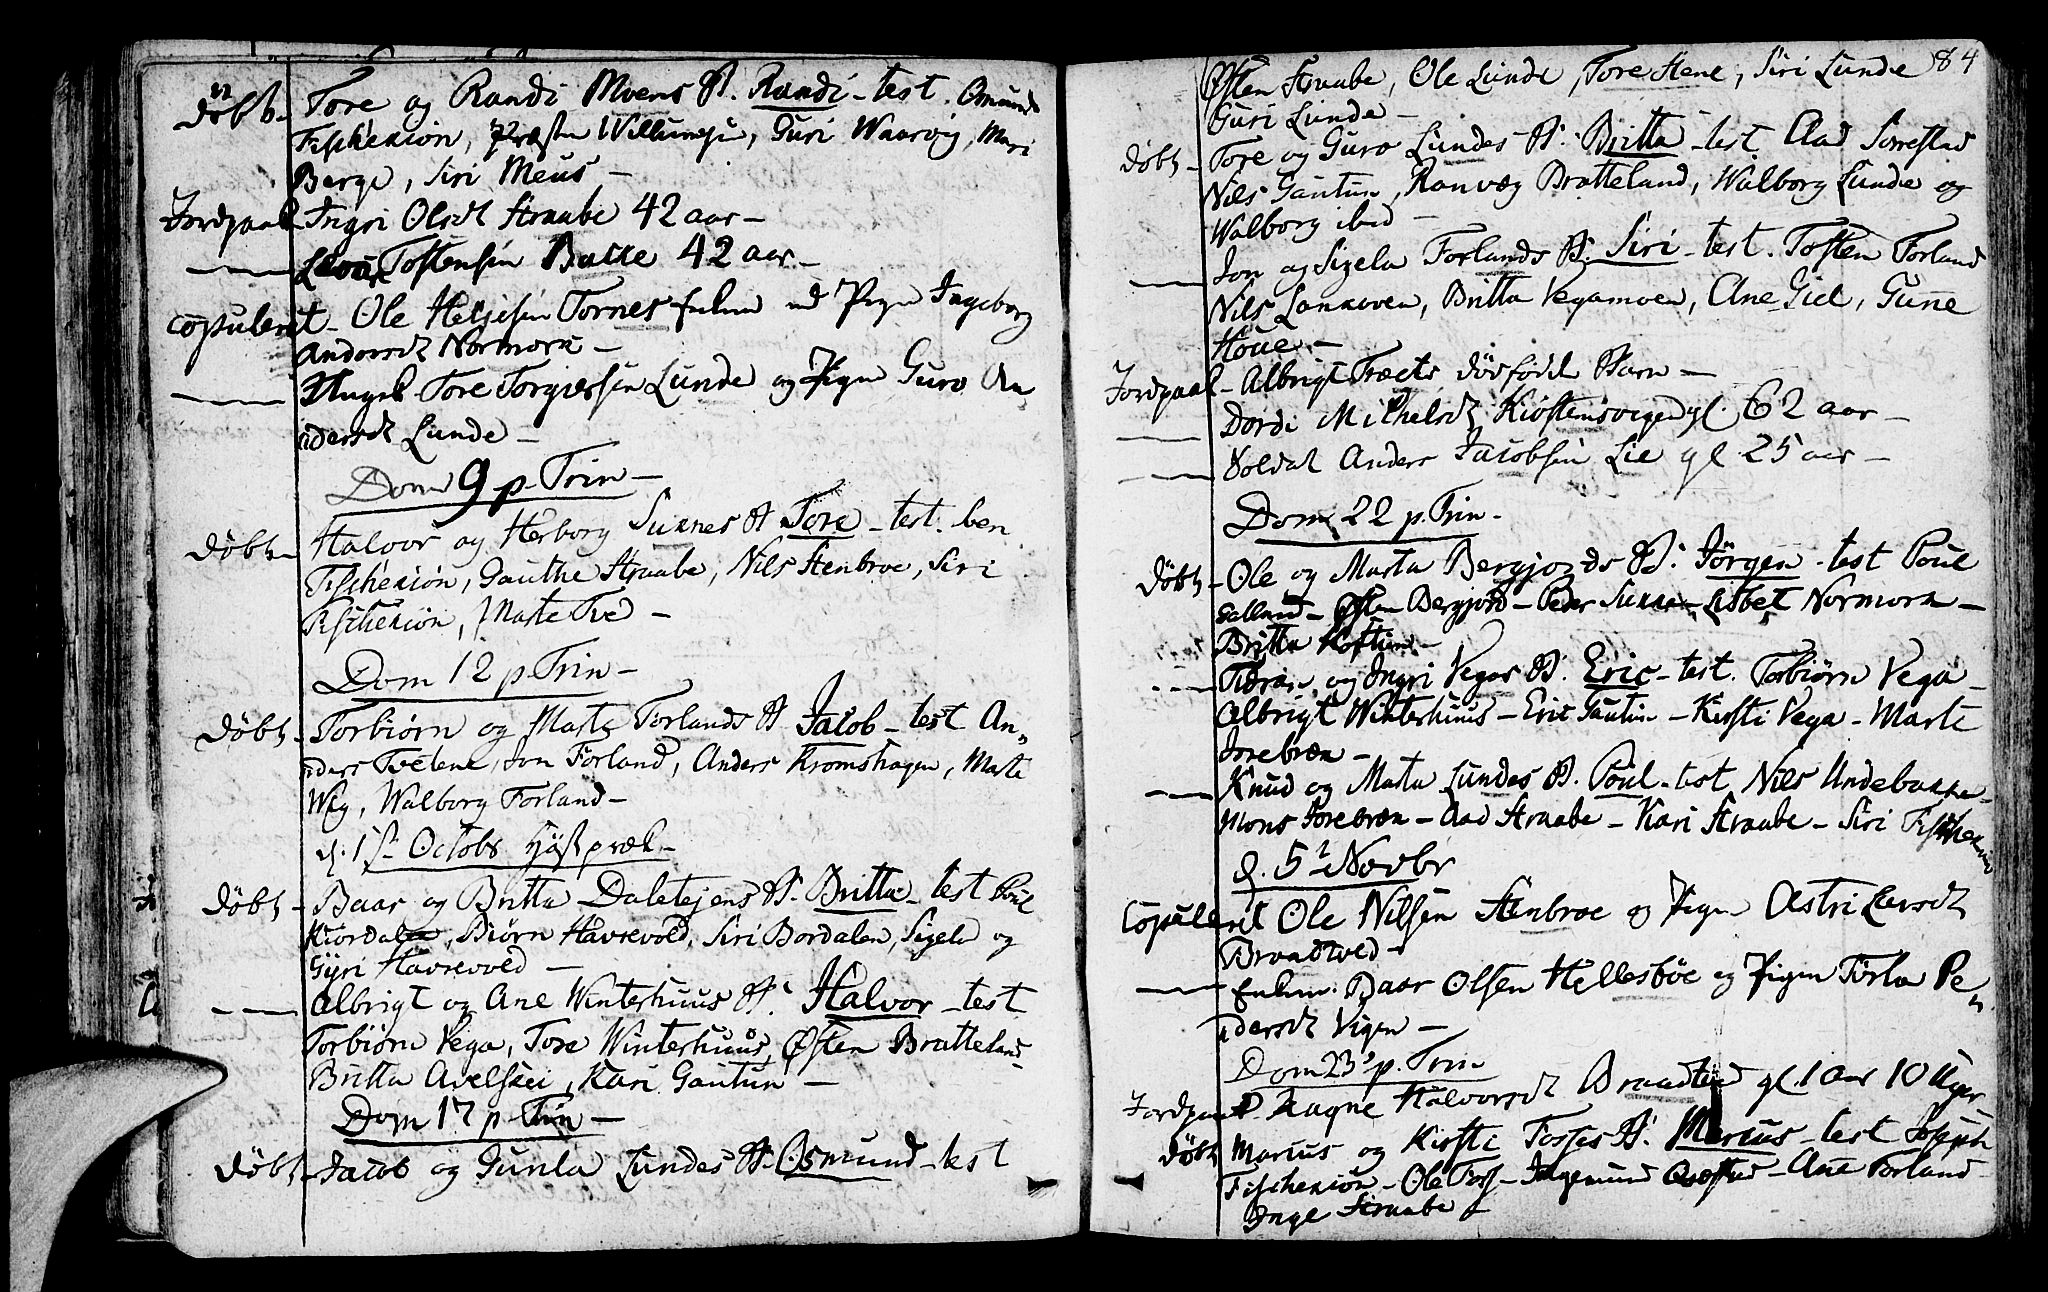 Döbt - Tore og Randi Moens B. Randi - test. Osmund
Fischexiön, Præsten Willumsen, Guri Waarvig, Mari
Berge, Siri Meus -
Jordpaak. Ingri Olsdt Straabe 42 aar -
Tostensön Bakke 42 aar -
Copuleret - Ole Heljesön Tornes Pige Ingeborg
Andersdt Normorn -
Ungk. Tore Torgiersen Lunde og Pigen Guro An
dersdt Lunde -
Dom 9 p. Trin -
Döbt - Halvor og Herborg Sunnes B Tore - test. ben
Fischexiön, Gauthe Straabe, Nils Stenbroe, Siri
Fischexiön, Marte Tve -
Dom 12 p. Trin -
Döbt - Torbiörn og Marte Forlands B Jacob - test An,,
ders Tvetene, Jon Forland, Anders Kromshagen, Marte
Wig, Walborg Forland -
d. 1st Octobr Höst præk -
Döbt - Baar og Britta Daletejens B. Britta - test Poul
Kiordalen, Biörn Havrevold, Siri Bordalen, Sigela og
Gÿri Havrevold -
Albrigt og Ane Winterhuus B. Halvor - test
Torbiörn Vega, Tore Winterhuus, Østen Bratteland
Britta Axelskei, Kari Gautun -
Dom 17 p. Trin -
Döbt - Jacob og Gunla Lundes B. Osmund - test
84
Østen Straabe, Ole Lunde, Tore Stene, Siri Lunde
Guri Lunde -
Döbt - Tore og Guro Lundes B: Britta - test Aad Sorrestad
Nils Gautun, Ranvæg Bratteland, Walborg Lunde og
Walborg ibid -
Jon og Sigela Forlands B. Siri - test. Tosten Forland
Nils Lonkoven, Britta Vegamoen, Ane Giel, Gunne
Houe -
Jordpaak - Albrigt Træets dödfödt Barn -
Dordi Michelsdt Kiöstensvige gl. 62 aar -
Soldat Anders Jacobsön Lie gl 25 aar -
Dom 22 p. Trin -
Döbt - Ole og Marta Bergjords B: Jörgen - test Poul
Østen Bergjord - Peder Sunne - Lisbet Normorn -
Britta
og Ingri Vegas B. Eric - test. Torbiörn Vega -
Albrigt Winterhuus - Eric Gautun - Kirsti Vega - Marte
Josebræn -
Knud og Marta Lundes B. Poul - test Nils Undebakke -
Mons Josebræn - Aad Straabe - Kari Straabe - Siri Fischexiön
d. 5t Novbr
Copuleret Ole Nilsen Stenbroe og Pigen Astri Larsdt
Braadtved -
Enkem. Baar Olsen Hellesböe og Pigen Törla Pe,,
dersdt Vigen -
Dom 23 p. Trin
Jordpaak. Ragne Halvorsdt Braadtved gl. 1 aar 10 Uger
Döbt Marius og Kirsti Fosses B. Marius - test Joseph
Fischexiön - Ole Foss - Ingemund - Ane Forland
Inge Straabe -